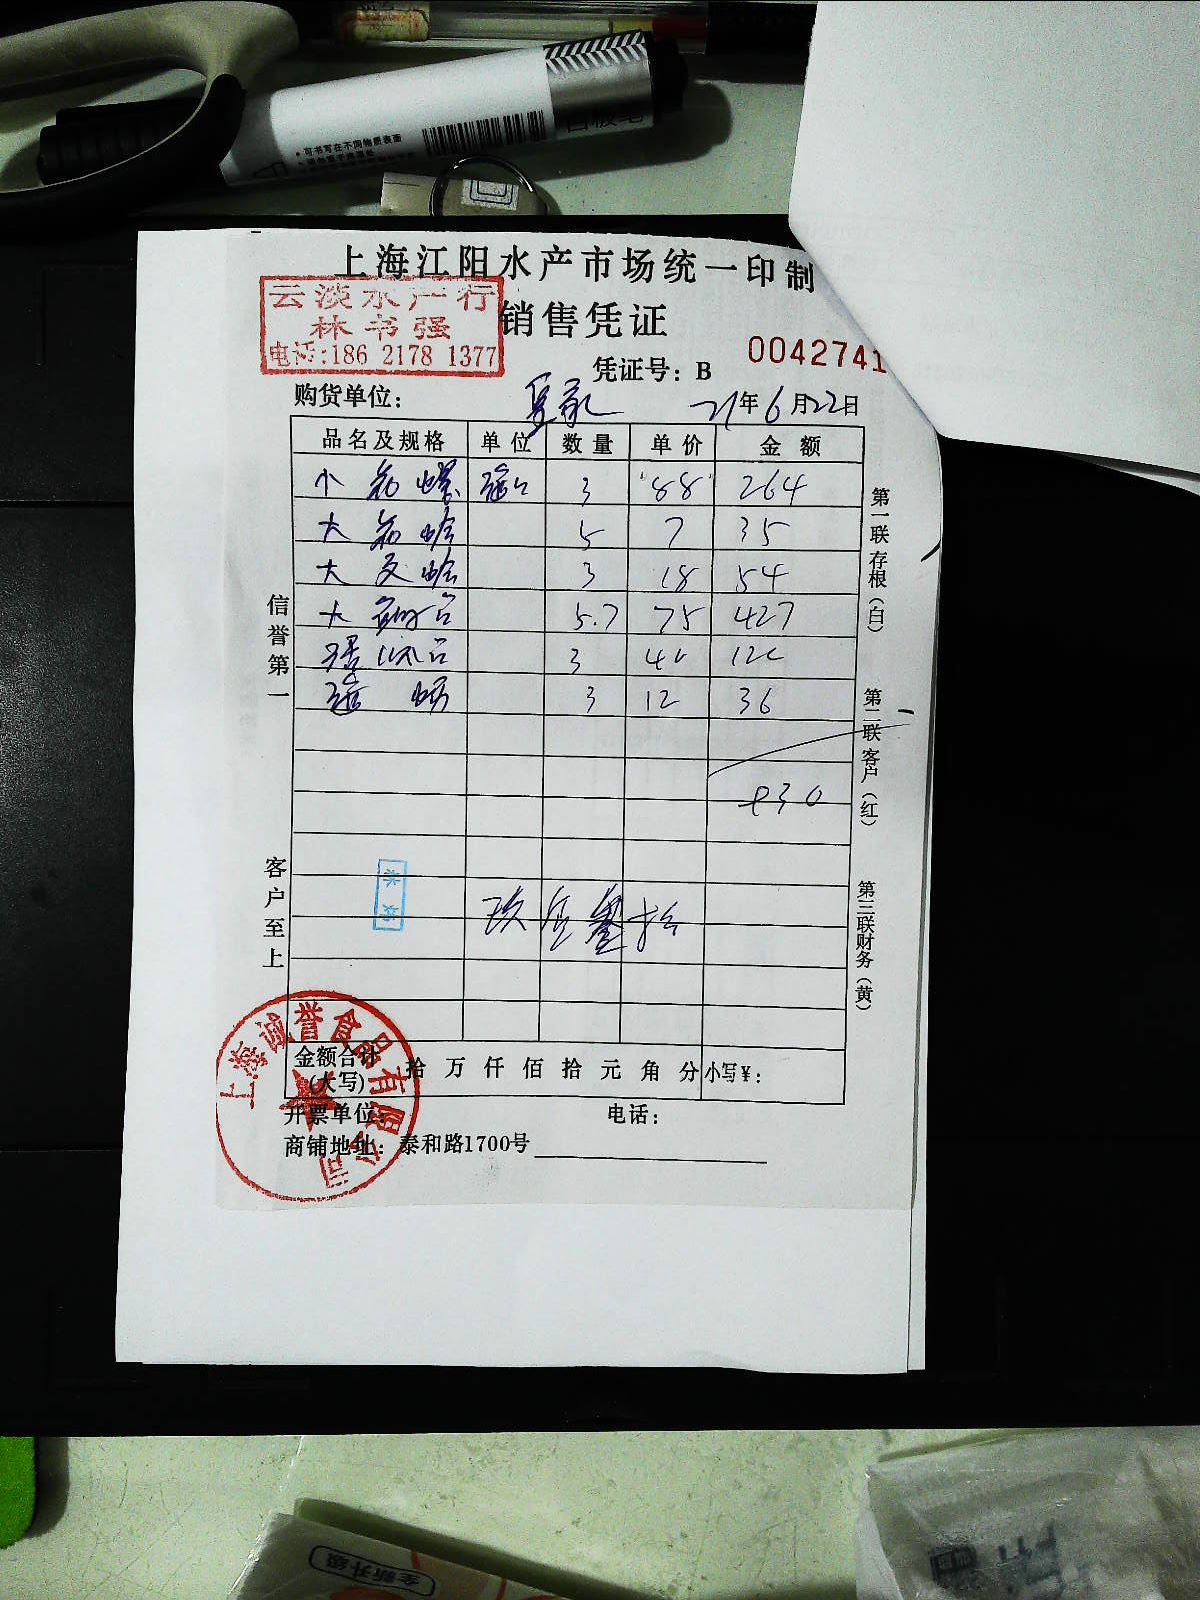 • 可书写在不同物质表面
上海江阳水产市场统一印制
云淡水产行
林书强
电话:186 2178 1377
销售凭证
凭证号: B 0042741
购货单位:
21年6月22日
品名及规格 单位 数量 单价 金额
小花螺 3 88 264
大花蛤 5 7 35
大文蛤 3 18 54
大鲍 5.7 75 427
3 40 120
3 12 36
930
玖佰叁拾
信誉第一
客户至上
第一联存根(白)
第二联客户(红)
第三联财务(黄)
上海诚誉食品有限公司
金额合计(大写) 拾 万 仟 佰 拾 元 角 分 小写¥:
开票单位: 电话:
商铺地址: 泰和路1700号
全新升级